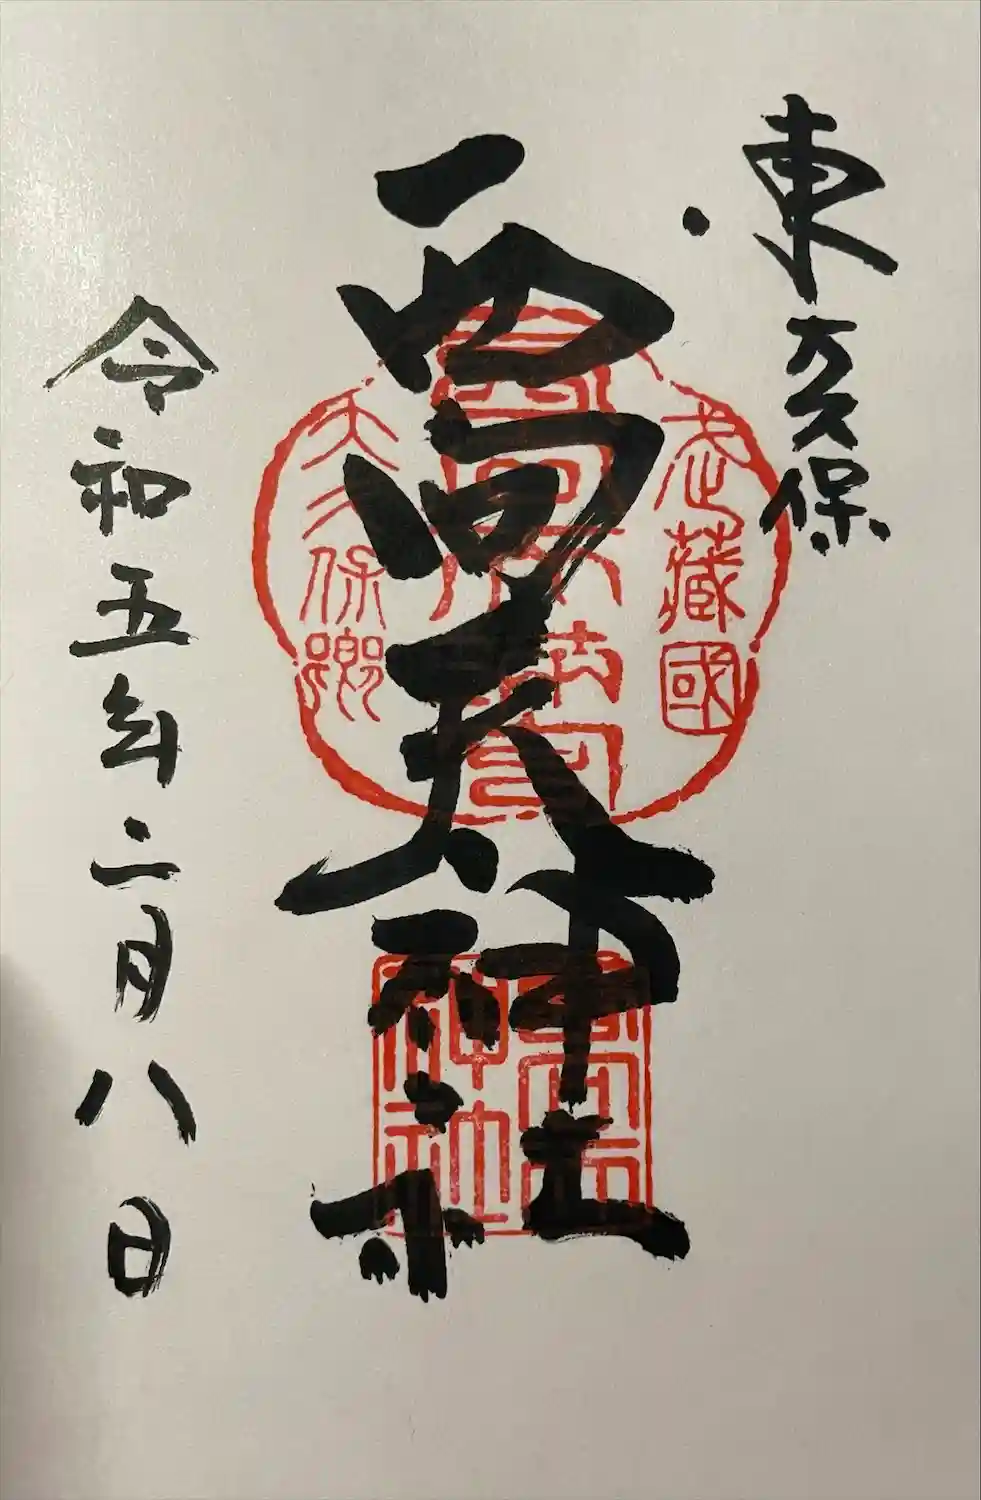 東大久保
西向天神社
令和五年二月八日
武藏國
大久保鄉
西向天
神社